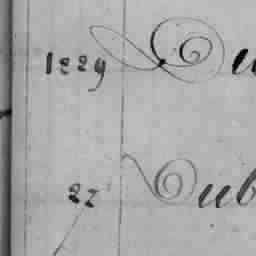 1229 Du
22 Dub